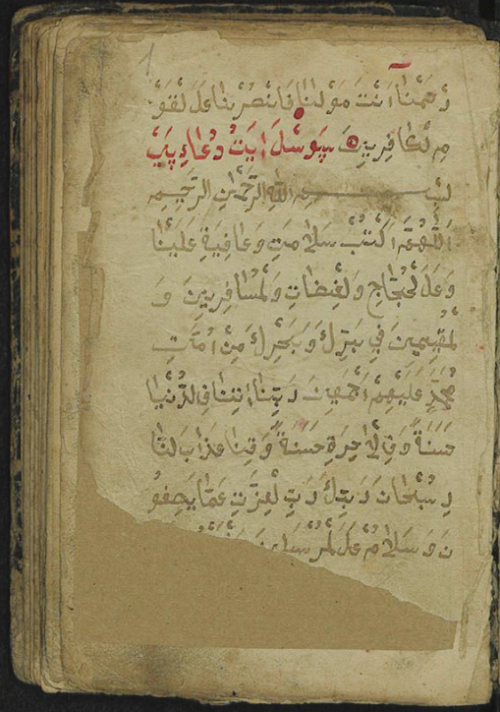 رْحَمْنَا اَنْتَ مَوْلٰنَا فَانْصُرْنَا عَلَ لْقَوْ
مِ لْكَافِرِينَ
بِسْمِ اللهِ الرَّحْمٰنِ الرَّحِيمِ
اَللّٰهُمَّ اكْتُبْ سَلَامَتِ وَعَافِيَةِ عَلَيْنَا
وَعَلَ لْحُجَّاجِ وَلْغُضَاتِ وَلْمُسَافِرِينَ وَ
لْمُقِيمِينَ فِي بَرِّكَ وَبَحْرِكَ مِنْ اُمَّتِ
مُحَمَّدٍ عَلَيْهِمْ اَجْمَعِينَ رَبَّنَا اٰتِنَا فِ لدُّنْيَا
حَسَنَةً وَفِ لْاٰخِرَةِ حَسَنَةً وَقِنَا عَذَابَ لنَّا
رِ سُبْحَانَ رَبِّكَ رَبِّ لْعِزَّتِ عَمَّا يَصِفُو
نَ وَسَلَامٌ عَلَ لْمُرْسَلِينَ